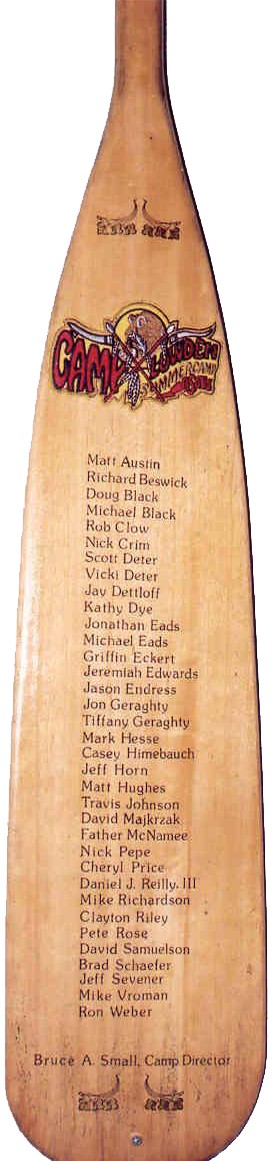 CAMP LOWDEN
SUMMERCAMP
Matt Austin
Richard Beswick
Doug Black
Michael Black
Rob Clow
Nick Crim
Scott Deter
Vicki Deter
Jay Dettloff
Kathy Dye
Jonathan Eads
Michael Eads
Griffin Eckert
Jeremiah Edwards
Jason Endress
Jon Geraghty
Tiffany Geraghty
Mark Hesse
Casey Himebauch
Jeff Horn
Matt Hughes
Travis Johnson
David Majkrzak
Father McNamee
Nick Pepe
Cheryl Price
Daniel J. Reilly, III
Mike Richardson
Clayton Riley
Pete Rose
David Samuelson
Brad Schaefer
Jeff Sevener
Mike Vroman
Ron Weber
Bruce A. Small, Camp Director